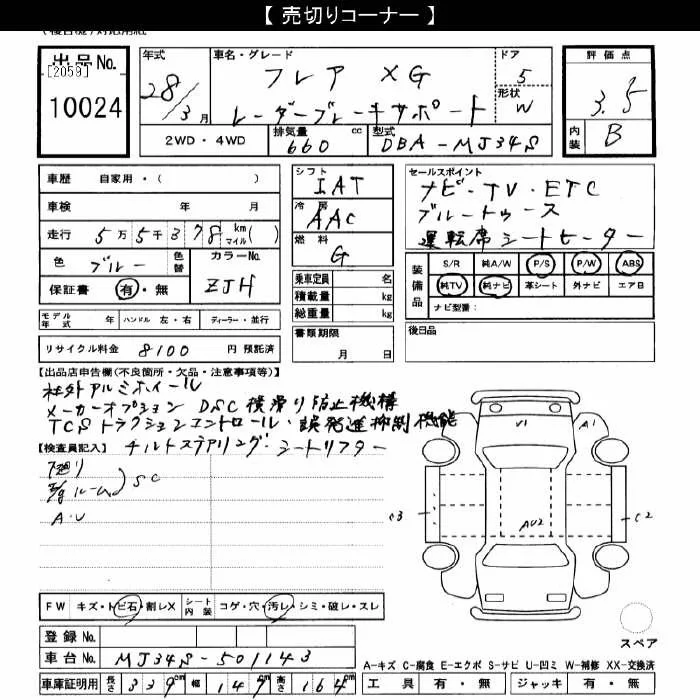 【 売切りコーナー 】
出品No.
[2059]
10024
年式
28/3月
車名・グレード
フレア XG
レーダーブレーキサポート
ドア
5
形状
W
評価点
3.5
内装
B
2WD・4WD
排気量
660 cc
型式
DBA-MJ34S
車歴 自家用・( )
車検 年 月
走行 5万5千378 km マイル( )
色 ブルー 色替
カラーNo. ZJH
保証書 有・無
シフト
IAT
冷房
AAC
燃料
G
乗車定員 名
積載量 kg
総重量 kg
セールスポイント
ナビ・TV・ETC
ブルートゥース
運転席シートヒーター
装備品
S/R 純A/W P/S P/W ABS
純TV 純ナビ 革シート 外ナビ エアB
ナビ型番:
モデル年式 年 ハンドル 左・右 ディーラー・並行
書類期限
月 日
後日品
リサイクル料金 8100 円 預託済
【出品店申告欄(不良箇所・欠品・注意事項等)】
社外アルミホイール
メーカーオプション DSC横滑り防止機構
TCSトラクションコントロール・誤発進抑制機能
チルトステアリング・シートリフター
【検査員記入】
ルーム SC
A・U
V1 A1
C3 AU2 C2
FW キズ・トビ石・割レX
シート内装 コゲ・穴・汚レ・シミ・破レ・スレ
登録 No.
車台 No. MJ34S-501143
車庫証明用 長さ 339cm 幅 147cm 高さ 164cm
スペア
A-キズ C-腐食 E-エクボ S-サビ U-凹ミ W-補修 XX-交換済
工具 有・無 ジャッキ 有・無